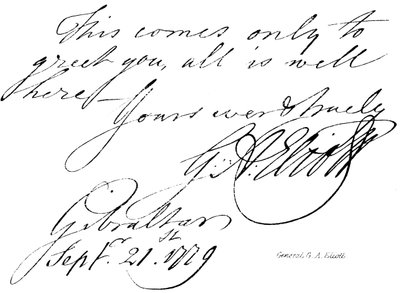 This comes only to
greet you, all is well
here—
Yours ever & truely
G: A: Eliott
Gibraltar
Septr. 21st. 1779
General G. A. Eliott.